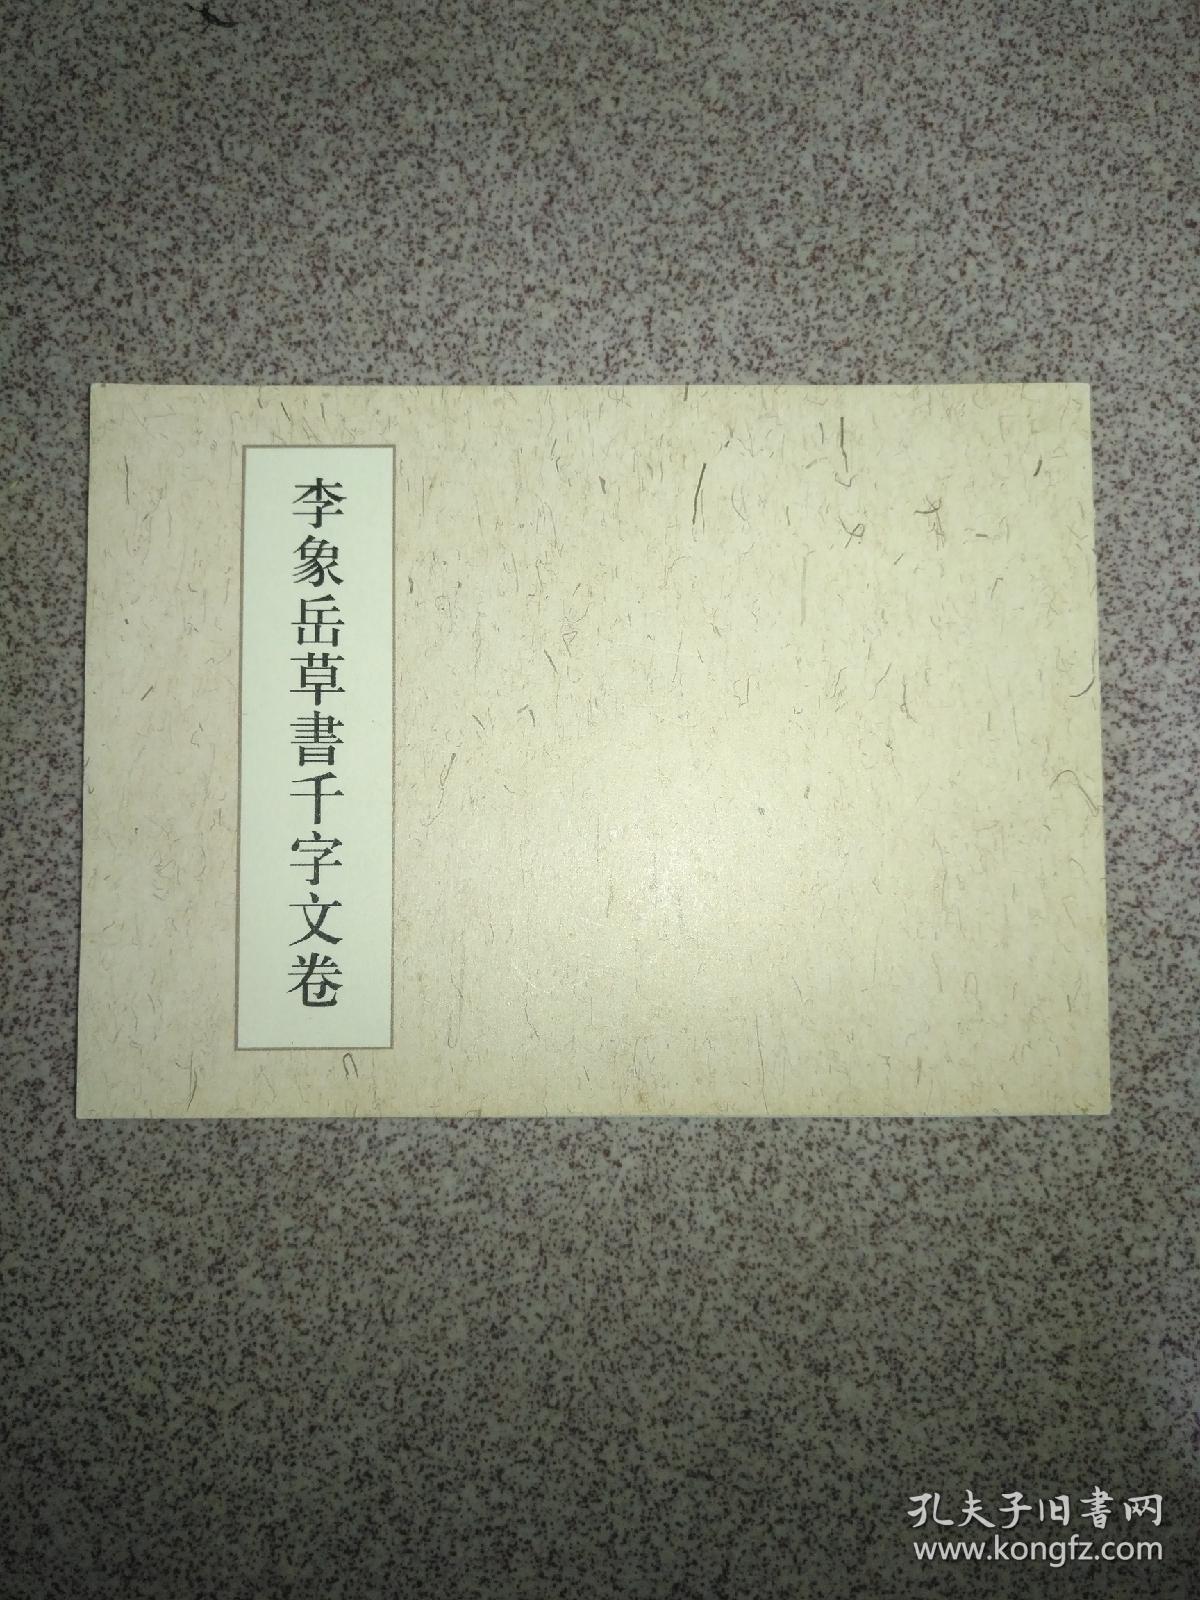 李象岳草書千字文卷
孔夫子旧書网
www.kongfz.com